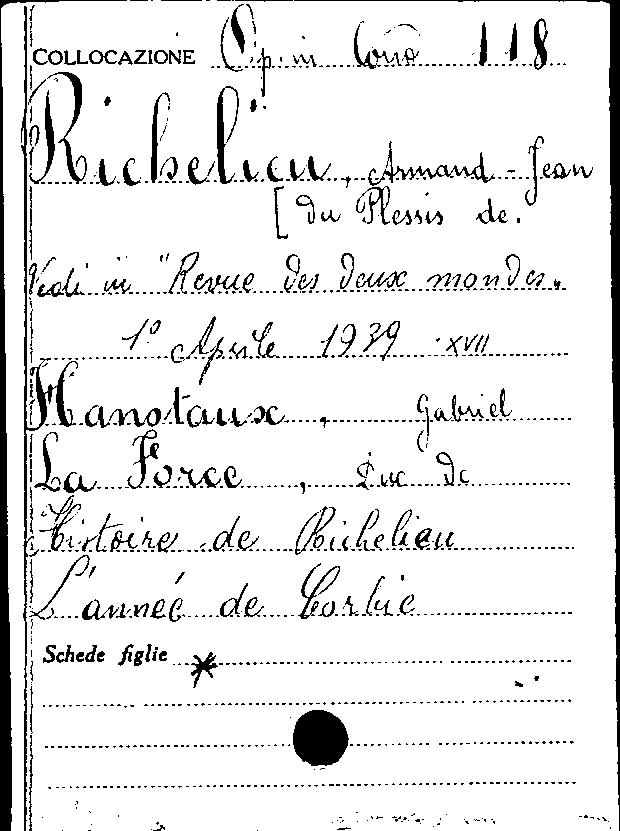 COLLOCAZIONE Op. in Cons 118
Richelieu, Armand-Jean
[du Plessis de.
Vedi in "Revue des deux mondes„
1º Aprile 1939 XVII
Hanotaux, Gabriel
La Force, Duc de
Histoire de Richelieu
L'année de Corbie
Schede figlie *